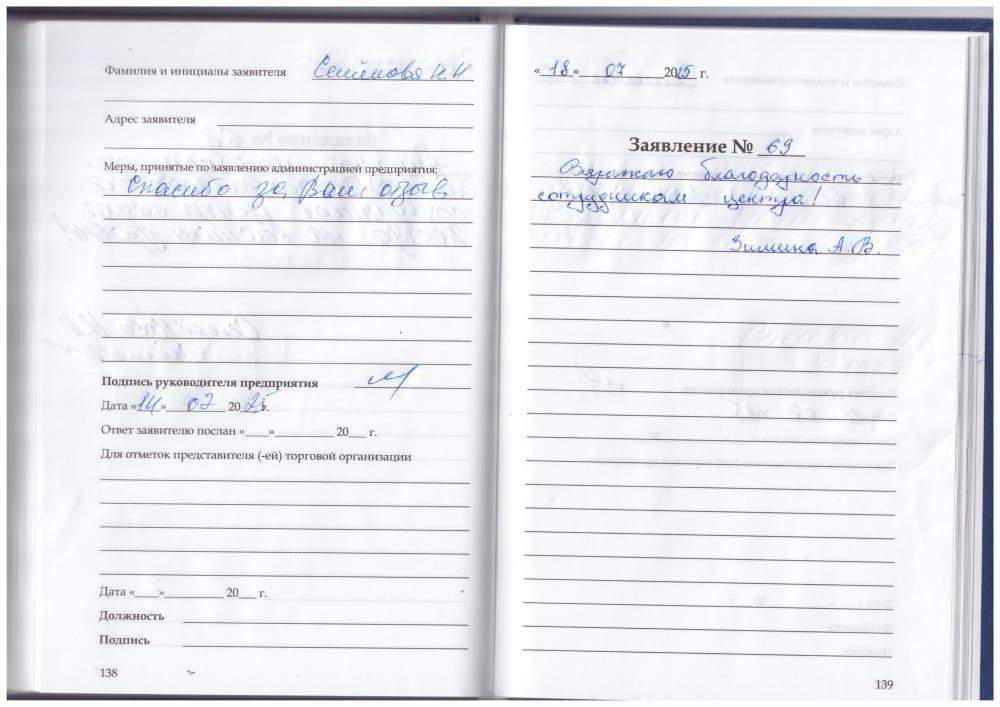 Фамилия и инициалы заявителя Семёнова Н.Н
Адрес заявителя
Меры, принятые по заявлению администрацией предприятия:
Спасибо за Ваш отзыв
Подпись руководителя предприятия
Дата «14» 07 2025г.
Ответ заявителю послан «___»_________ 20___ г.
Для отметок представителя (-ей) торговой организации
Дата «____»_________ 20___ г.
Должность
Подпись
138
«18» 07 2025 г.
Заявление № 69
Выражаю благодарность
сотрудникам центра!
Зимина А.В.
139